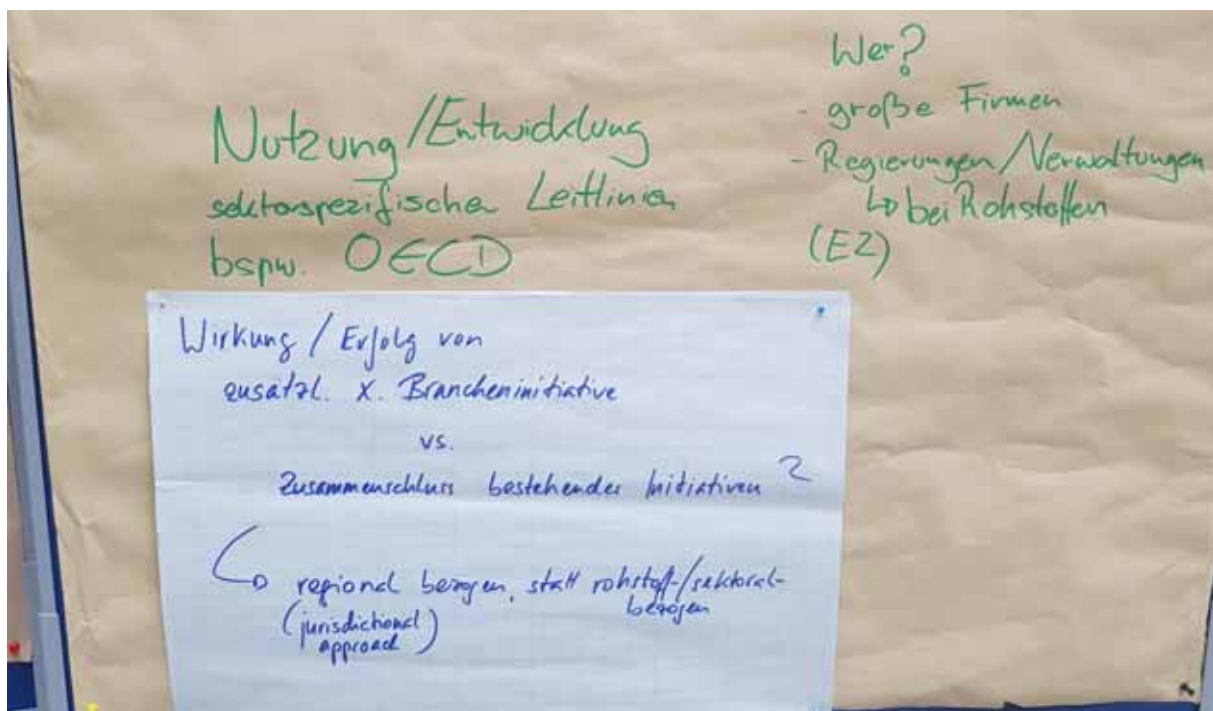 Nutzung/Entwicklung
sektorspezifischer Leitlinien
bspw. OECD
Wer?
- große Firmen
- Regierungen/Verwaltungen
↳ bei Rohstoffen
(EZ)
Wirkung / Erfolg von
zusätzl. x. Brancheninitiative
vs.
Zusammenschluss bestehender Initiativen ?
↳ regional bezogen, statt rohstoff-/sektoral-
bezogen
(jurisdictional
approach)